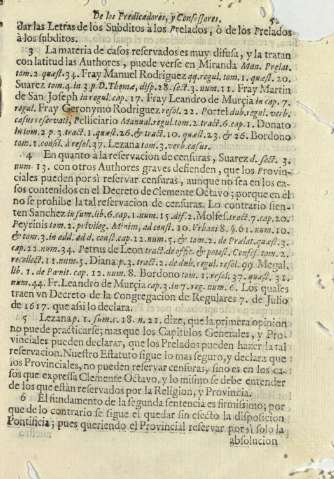 De los Predicadores, y Confessores.
dar las Letras de los Subditos à los Prelados, ò de los Prelados
à los subditos.
3 La materia de casos reservados es muy difusa, y la tratan
con latitud las Authores, puede verse en Miranda Man. Prelat.
tom. 2. quæst. 34. Fray Manuel Rodriguez qq. regul. tom. 1. quæst. 20.
Suarez tom. 4. in 3. p. D. Thomæ, disp. 28. sect. 3. num. 11. Fray Martin
de San Joseph in regul. cap. 17. Fray Leandro de Murcia in cap. 7.
regul. Fray Geronymo Rodriguez resol. 22. Portel dub. regul. verb.
casus reservati, Pelliciario Manual. regul. tom. 2. tract. 6. cap. 1. Donato
tom. 2. p. 3. tract. 1. quæst. 26. & tract. 10. quæst. 23. & 26. Bordono
tom. 1. const. à resol. 37. Lezana tom. 3. verb. casus.
4 En quanto à la reservacion de censuras, Suarez d. sect. 3.
num 13. con otros Authores graves defienden, que los Provin-
ciales pueden por sì reservar censuras, aunque no sea en los ca-
sos contenidos en el Decreto de Clemente Octavo; porque en èl
no se prohibe la tal reservacion de censuras. Lo contrario sien-
ten Sanchez in sum. lib. 6. cap. 1. num. 15. dif. 2. Molfes. tract. 7. cap. 20.
Peyrinis tom. 2. privileg. Minim, ad const. 10. Urbani 8. §. 61. num. 10.
& tom. 3. in add. ad d. const. cap. 12. num. 5. & tom. 2. de Prelat. quæst. 3.
cap. 22. num. 34. Petrus de Leon tract. de offic. & potest. Confes. tom. 2.
recollect. 11. num. 5. Diana p. 3. tract. 2. de dub. regul. resol. 99. Megal.
lib. 1. de Pœnit. cap. 12. num. 8. Bordono tom. 1. resol. 37. quæst. 32.
num. 44. Fr. Leandro de Murcia cap. 3. in 7. reg. num. 6. Los quales
traen vn Decreto de la Congregacion de Regulares 7. de Julio
de 1617. que assi lo declara.
5 Lezana p. 1. sum. c. 18. n. 21. dize, que la primera opinion
no puede practicarse; mas que los Capitulos Generales, y Pro-
vinciales pueden derarar, que los Prelados pueden hazer la tal
reservacion. Nuestro Estatuto sigue lo mas seguro, y declara que
los Provinciales, no pueden reservar censuras, sino es en los ca-
sos que expressa Clemente Octavo, y lo mismo se debe entender
de los que estàn reservados por la Religion, y Provincia.
6 El fundamento de la segunda sentencia es firmissimo; por
que de lo contrario se sigue el quedar sin efecto la disposicion
Pontificia; pues queriendo el Provincial reservar por sì solo la
absolucion